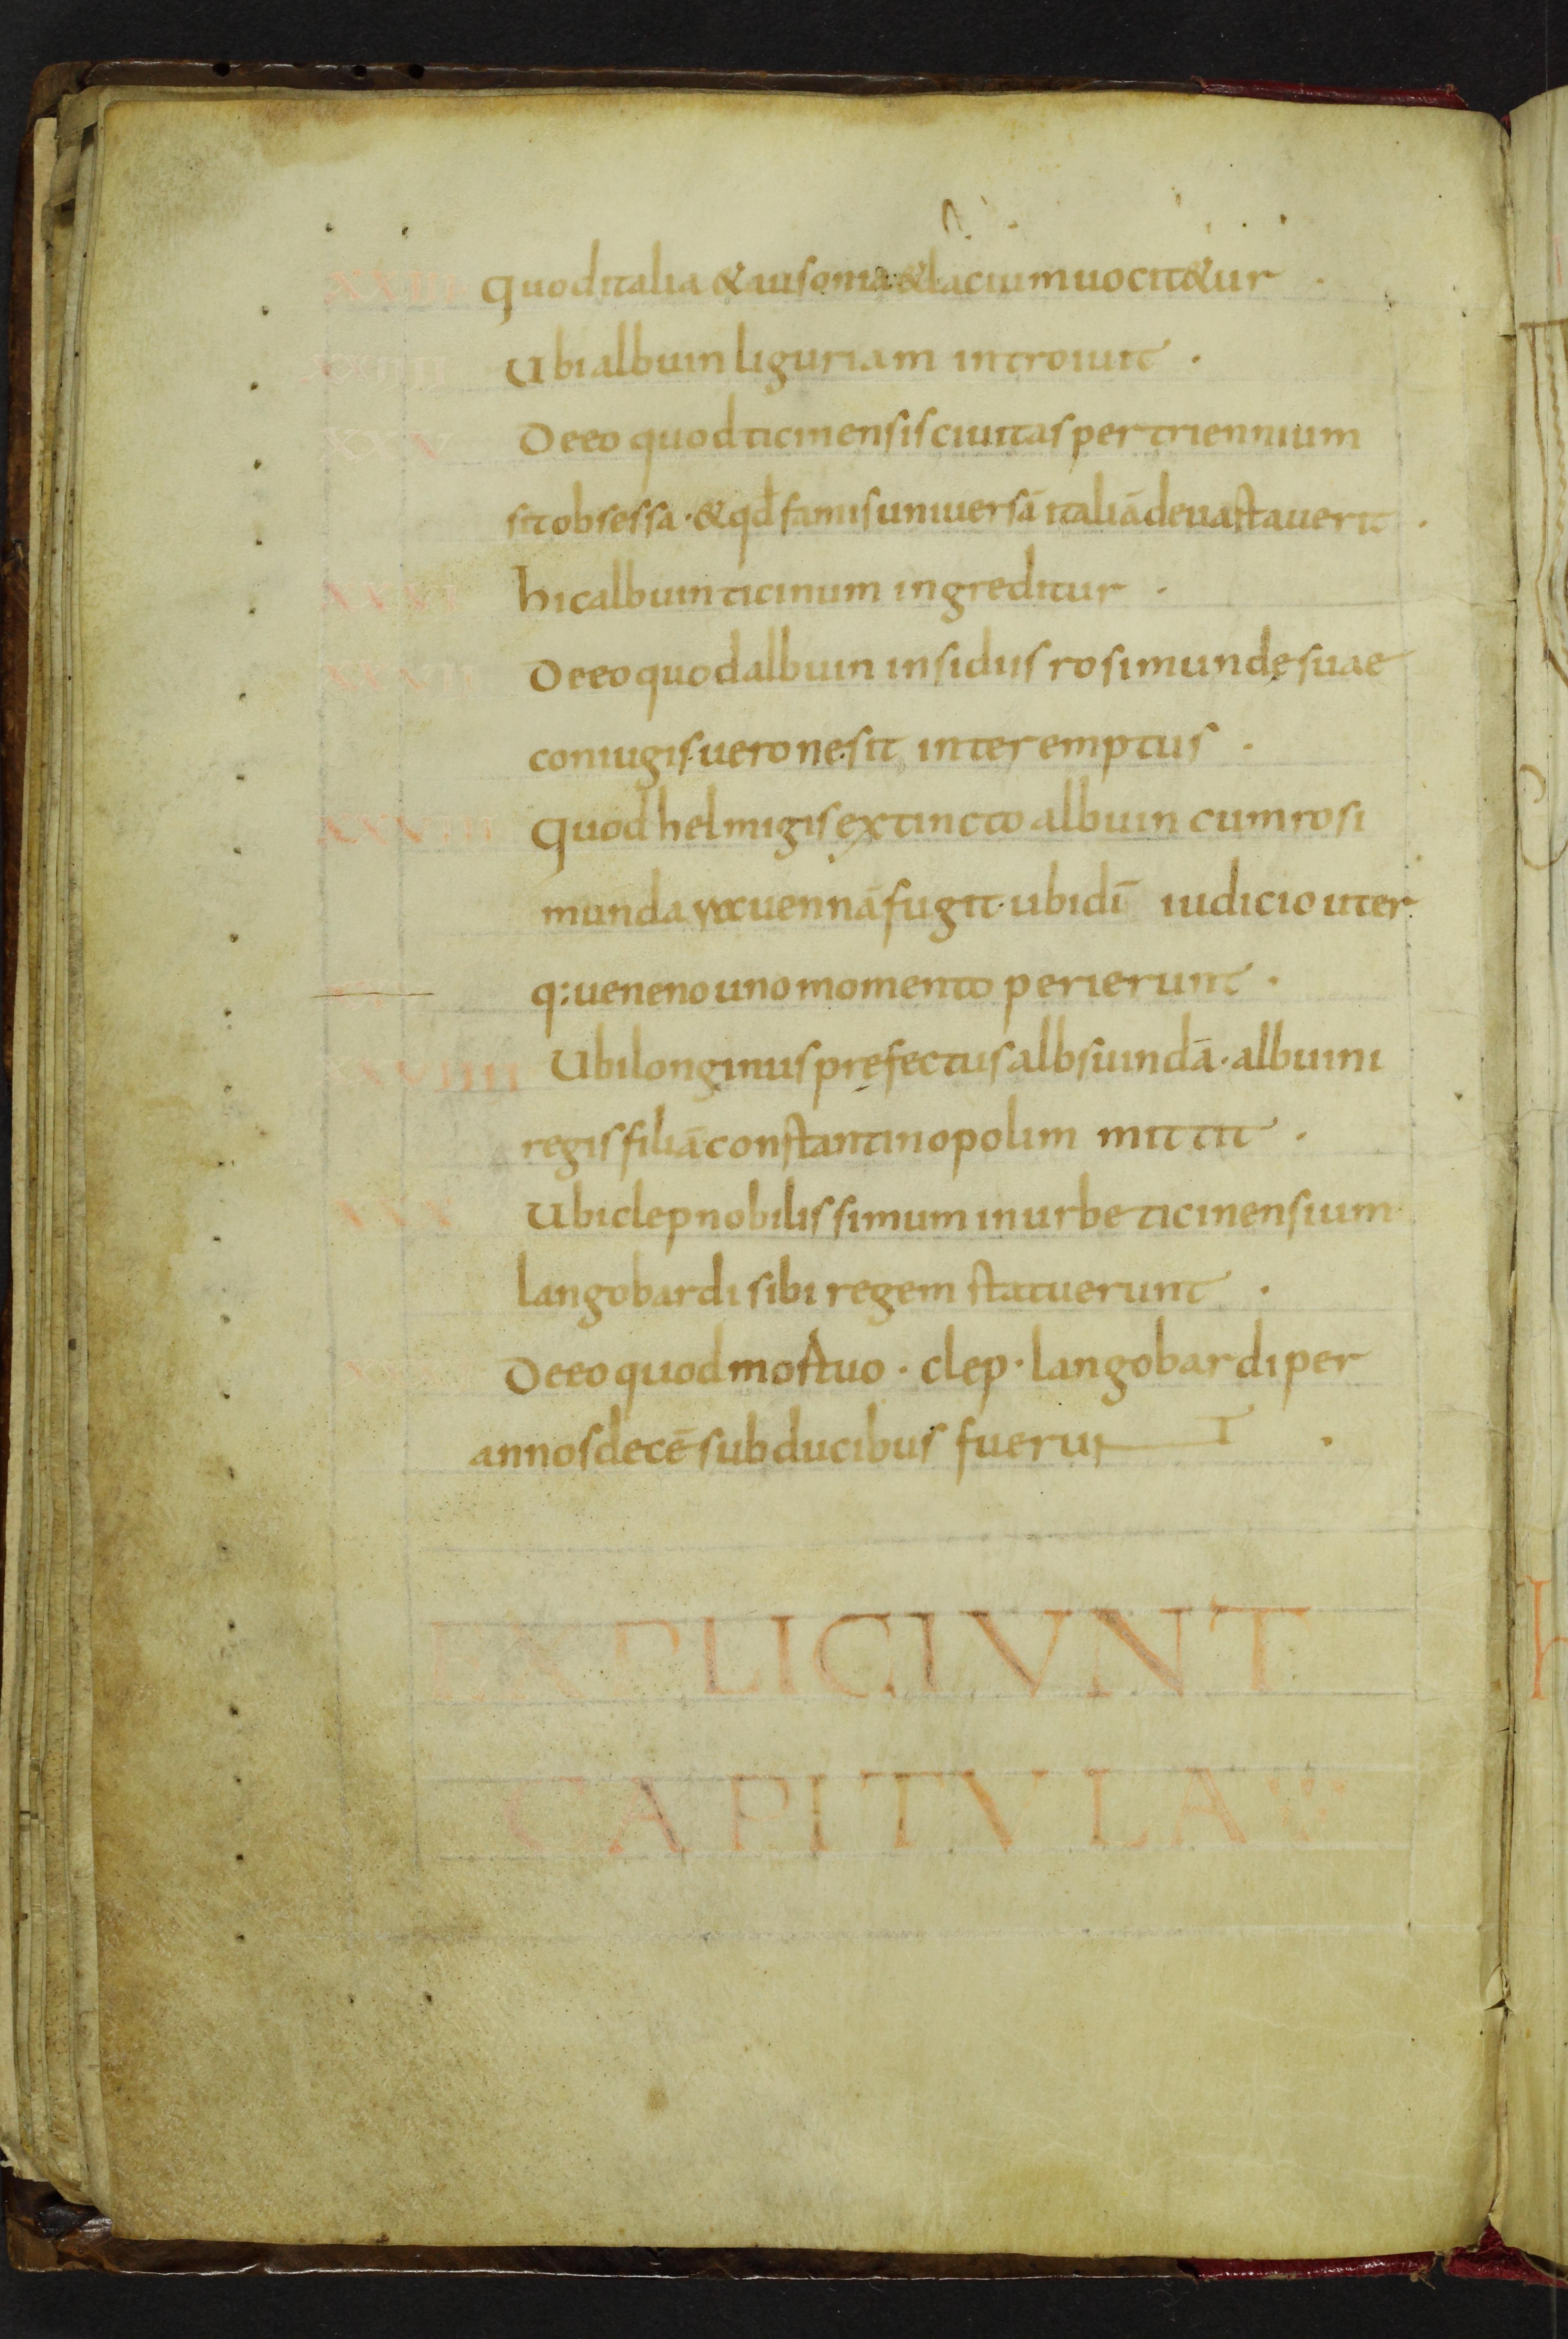 XXIII Quod italia & ausonia & lacium uocit&ur .
XXIIII Ubi albuin liguriam introiuit .
XXV De eo quod ticinensis ciuitas per triennium
sit obsessa · & qđ famis uniuersā italiā deuastauerit .
XXVI hic albuin ticinum ingreditur .
XXVII De eo quod albuin insidiis rosimundę suae
coniugis ueronę sit interemptus .
XXVIII Quod helmigis extincto albuin cum rosi
munda rauennā fugit · ubi dī iudicio uter
q: ueneno uno momento perierunt .
XXVIIII Ubi longinus pręfectus albsiundā · albuini
regis filiā constantinopolim mittit .
XXX Ubi clep nobilissimum in urbe ticinensium
langobardi sibi regem statuerunt .
De eo quod mortuo · clep · langobardi per
annos decē sub ducibus fuerunt .
EXPLICIUNT
CAPITULA